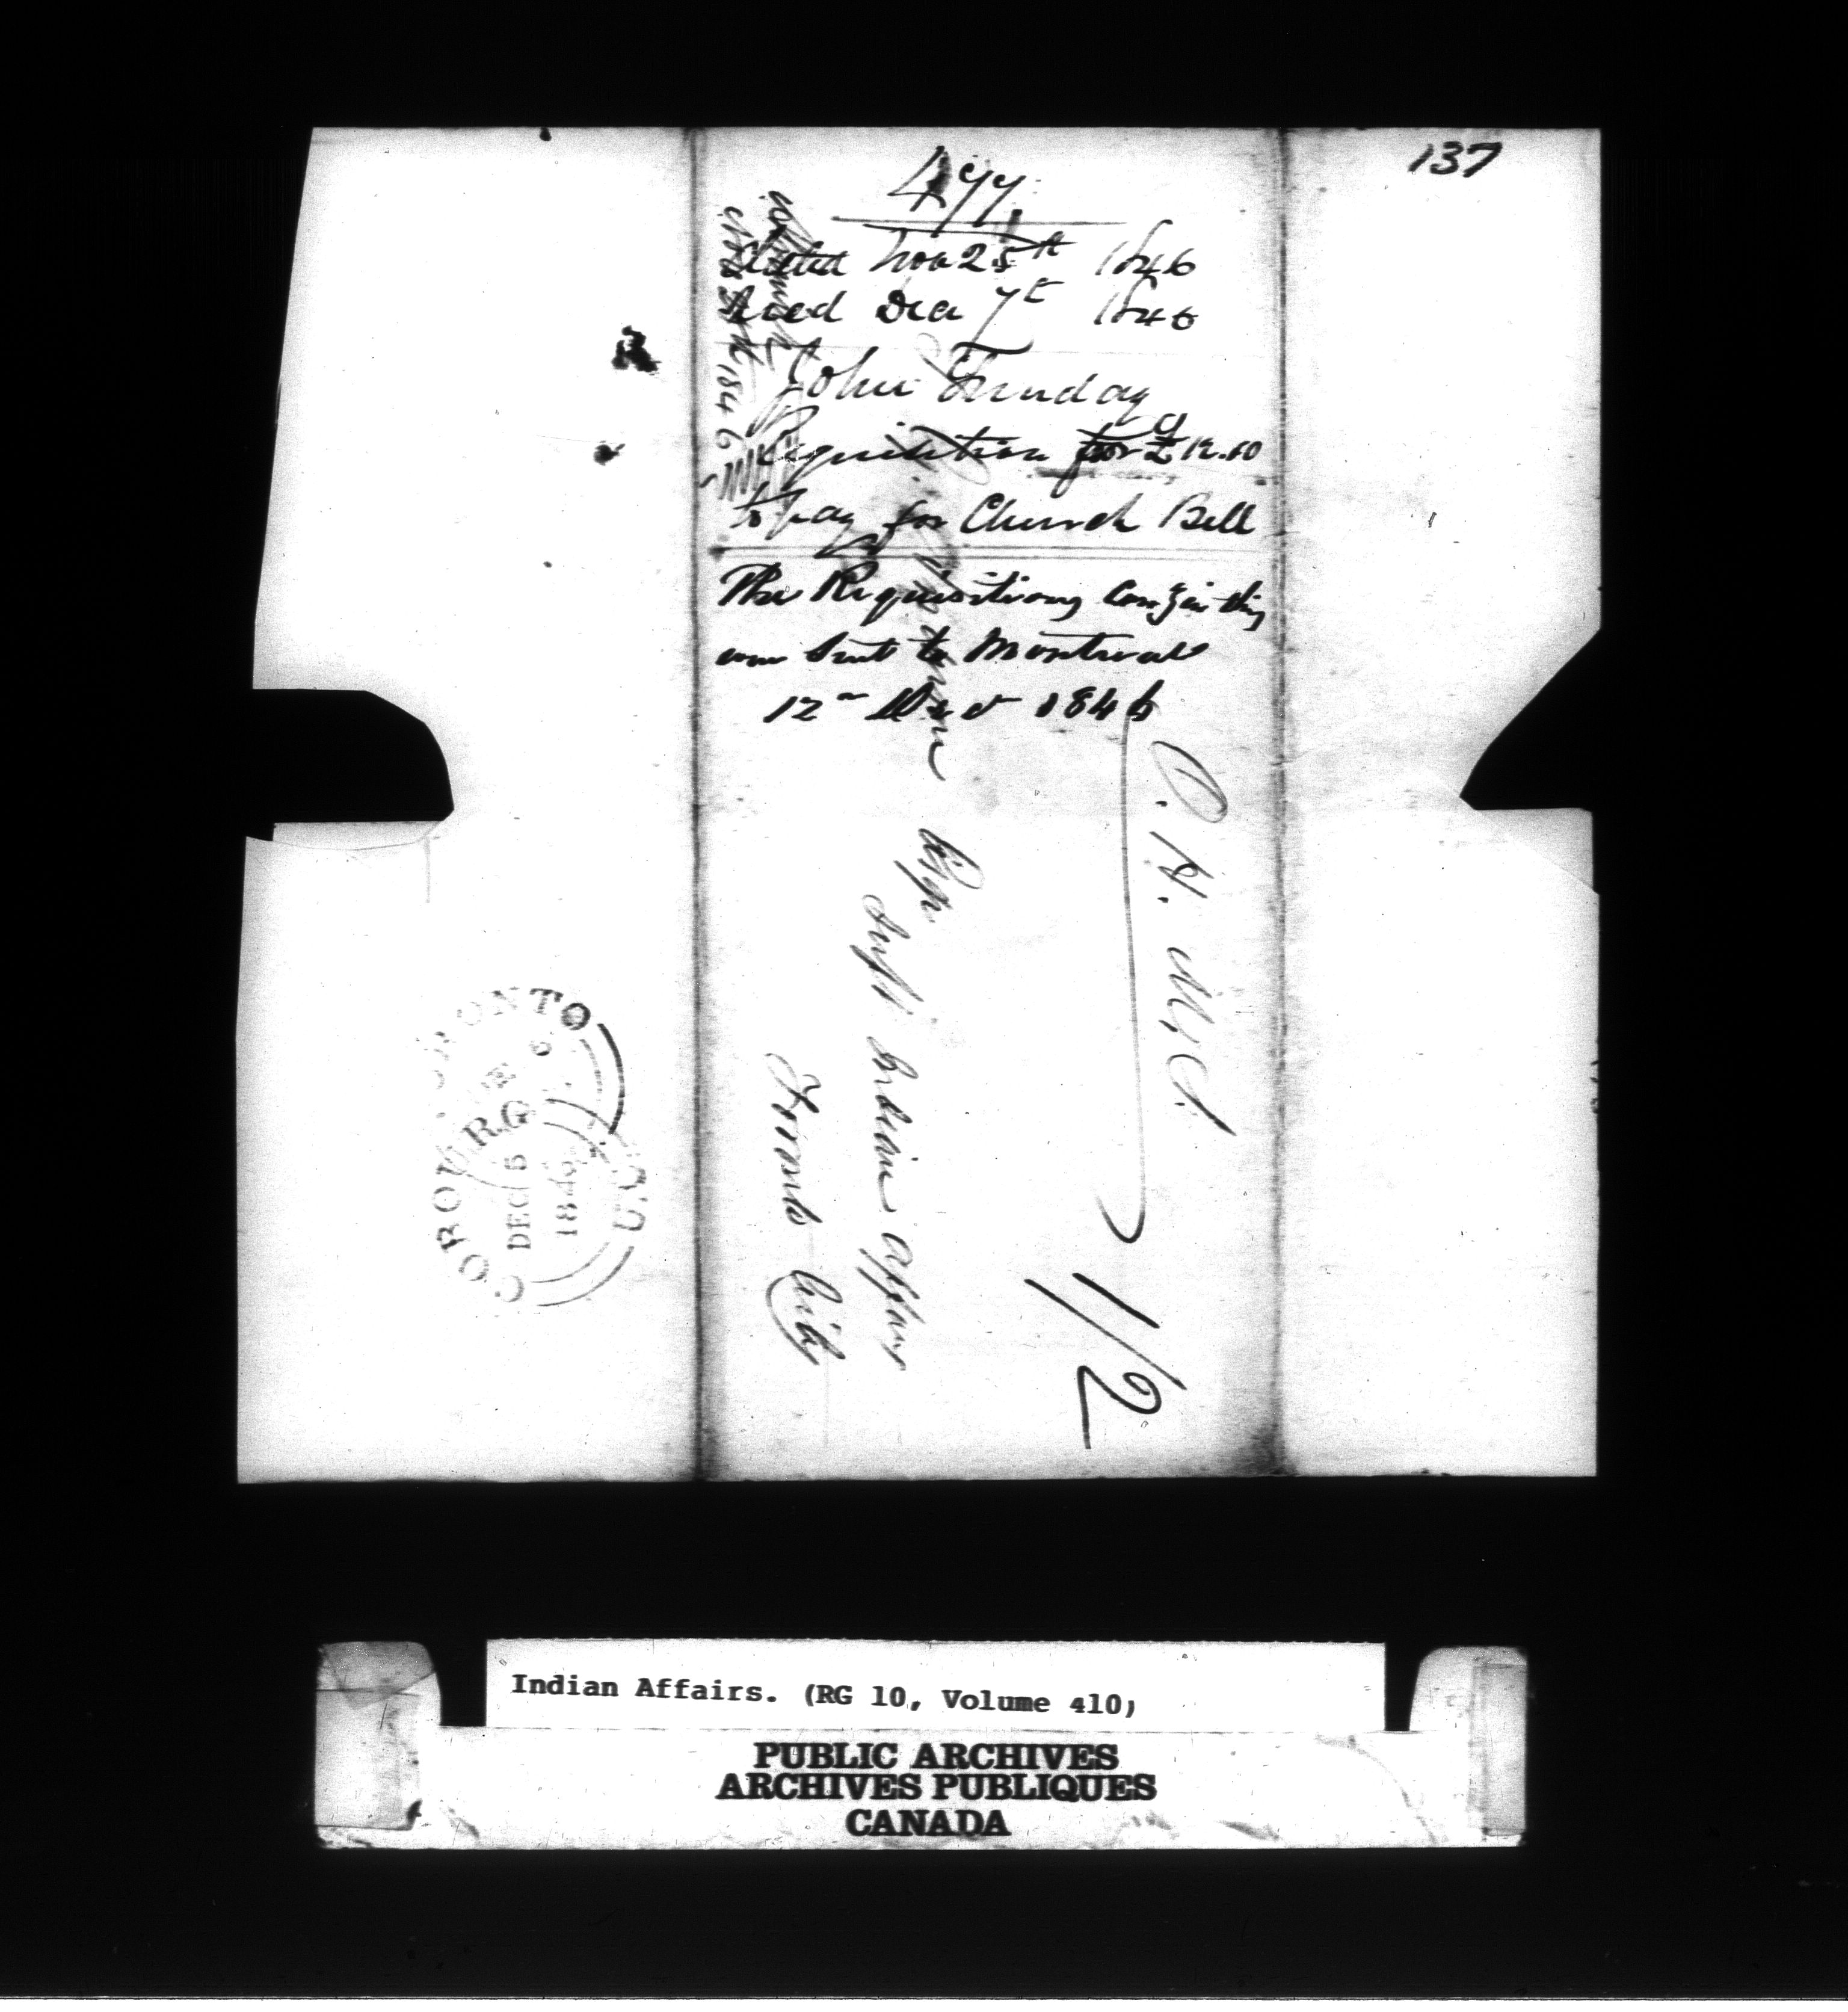 137
477.
Dated Nov 25th 1846
Recd Dec 7th 1846
John Sunday
Requisition for £12.10
to pay for Church Bell
The Requisitions
were sent to Montreal
12th Decr 1846
1846
O. H. M. S.
Esqr.
Supt. Indian Affairs
Toronto City
1/2
TORONTO
DE 6
COBOURG U.C.
DEC 5
1846
Indian Affairs. (RG 10, Volume 410)
PUBLIC ARCHIVES
ARCHIVES PUBLIQUES
CANADA